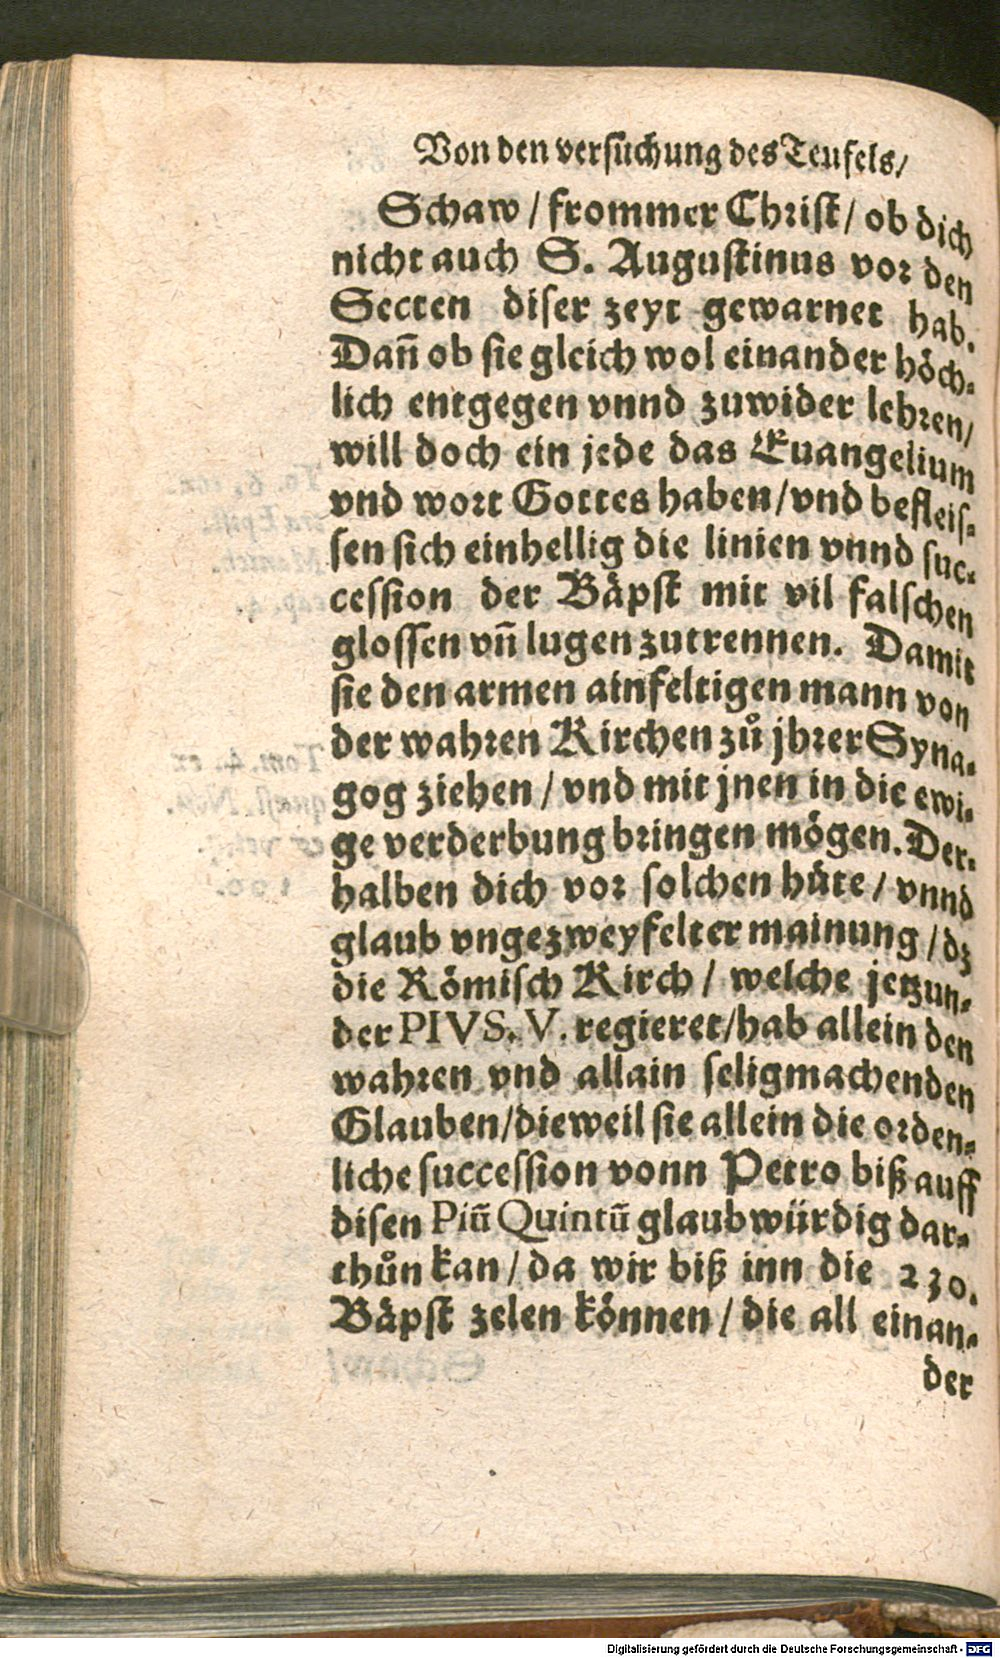 Von den versuchung des Teufels/
Schaw / frommer Christ/ ob dich
nicht auch S. Augustinus vor den
Secten diser zeyt gewarnet hab.
Dañ ob sie gleich wol einander höch-
lich entgegen vnnd zuwider lehren/
will doch ein jede das Euangelium
vnd wort Gottes haben/vnd befleis-
sen sich einhellig die linien vnnd suc-
cession der Bäpst mit vil falschen
glossen vñ lugen zutrennen. Damit
sie den armen ainfeltigen mann von
der wahren Kirchen zů jhrer Syna-
gog ziehen / vnd mit jnen in die ewi-
ge verderbung bringen mögen. Der-
halben dich vor solchen hüte / vnnd
glaub vngezweyfelter mainung / dz
die Römisch Kirch / welche jetzun-
der PIVS. V. regieret/hab allein den
wahren vnd allain seligmachenden
Glauben/dieweil sie allein die orden-
liche succession vonn Petro biß auff
disen Piũ Quintũ glaubwürdig dar-
thůn kan / da wir biß inn die 230.
Bäpst zelen können / die all einan-
der
Digitalisierung gefördert durch die Deutsche Forschungsgemeinschaft - DFG